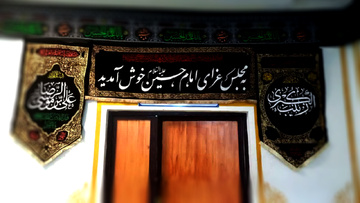 به مجلس عزای امام حسین خوش آمدید
علی بن موسی الرضا
زینب الکبری